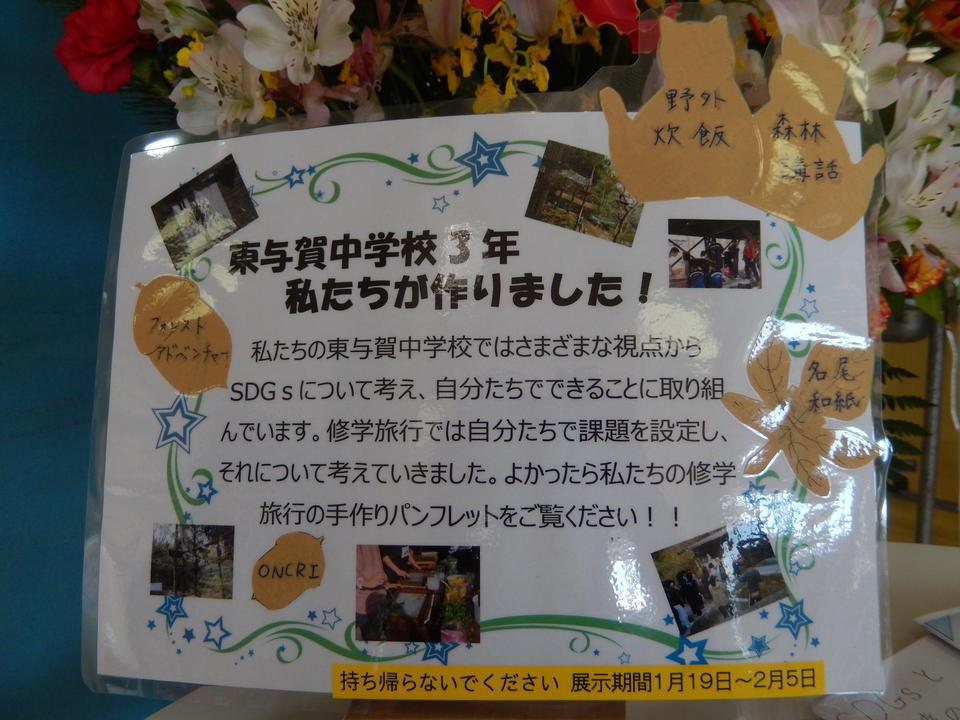 野外
炊飯
森林
講話
東与賀中学校3年
私たちが作りました！
フォレスト
アドベンチャー
名尾
和紙
私たちの東与賀中学校ではさまざまな視点から
SDGｓについて考え、自分たちでできることに取り組
んでいます。修学旅行では自分たちで課題を設定し、
それについて考えていきました。よかったら私たちの修学
旅行の手作りパンフレットをご覧ください！！
ONCRI
持ち帰らないでください 展示期間1月19日～2月5日
SDGsと